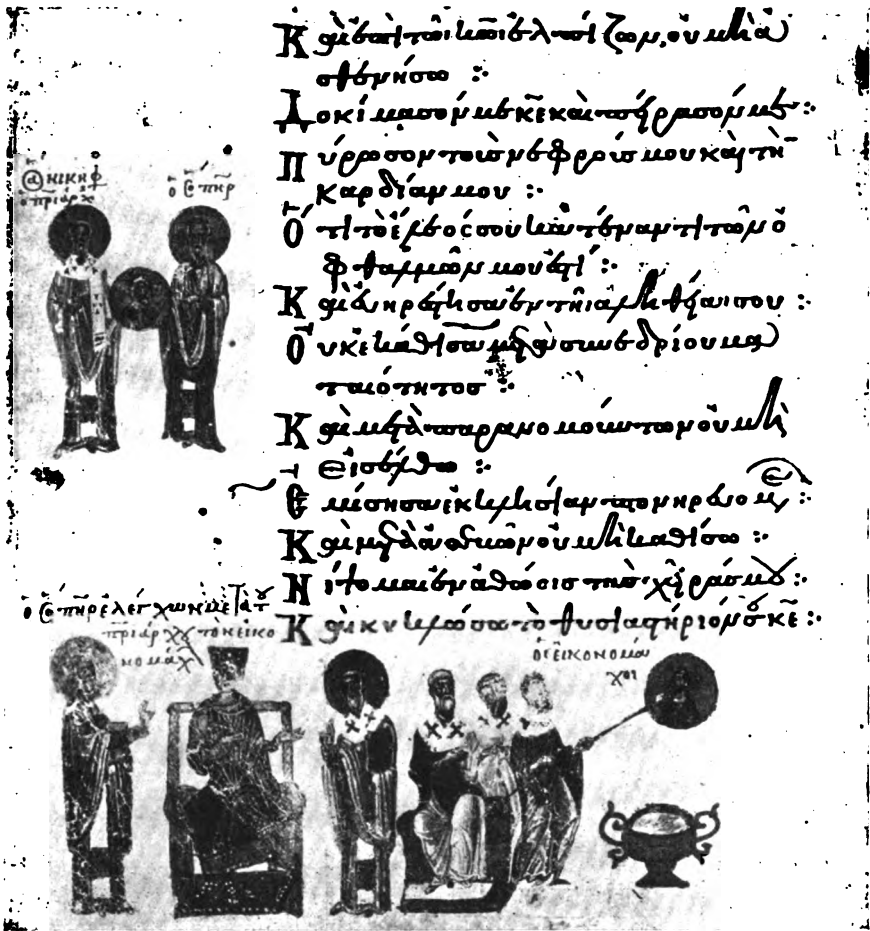 Καὶ ἐπὶ τῶι κω ἐλπίζων, οὐ μὴ ἀ
σθενήσω :·
Δοκίμασόν με κε καὶ πείρασόν με :·
Πύρωσον τοὺς νεφρούς μου καὶ τὴν
καρδίαν μου :·
Ὅτι τὸ ἔλεός σου κατέναντι τῶν ὀ
φθαλμῶν μου ἐστί :·
ὁ ἅ νικηφ
ὁ πριάρχ
ὁ ὅ πηρ
Καὶ εὐηρέστησα ἐν τῆι ἀληθείαι σου :·
Οὐκ ἐκάθισα μετὰ συνεδρίου μα
ταιότητος :·
Καὶ μετὰ παρανομούντων οὐ μὴ
εἰσέλθω :·
Ἐμίσησα ἐκκλησίαν πονηρευομε :·
Καὶ μετὰ ἀδίκων οὐ μὴ καθίσω :·
Νίψομαι ἐν ἀθώοις τὰς χεῖράς μου :·
Καὶ κυκλώσω τὸ θυσιαστήριόν σου κε :·
ὁ ὅ πηρ ἐλέγχων μετὰ τοῦ
πριάρχου τὸν εἰκο
νομάχ
οἱ εἰκονομά
χοι